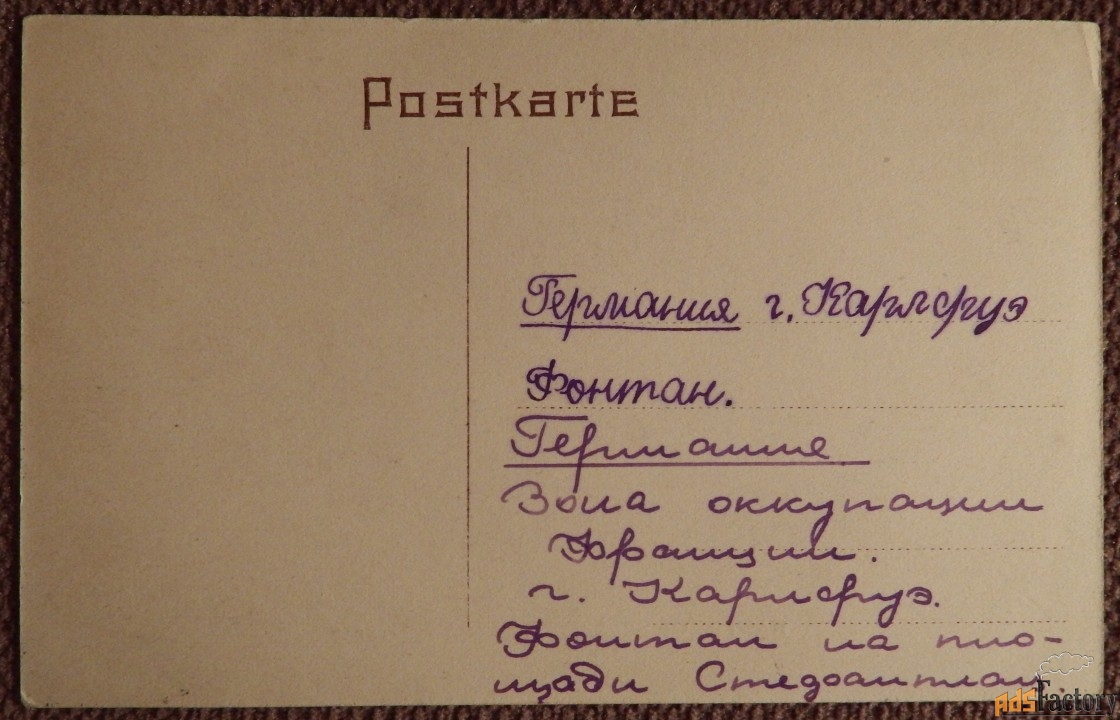 Postkarte
Германия г. Карлсруэ
Фонтан.
Германия
Зона оккупации
Франции.
г. Карлсруэ.
Фонтан на пло-
щади
adsFactory